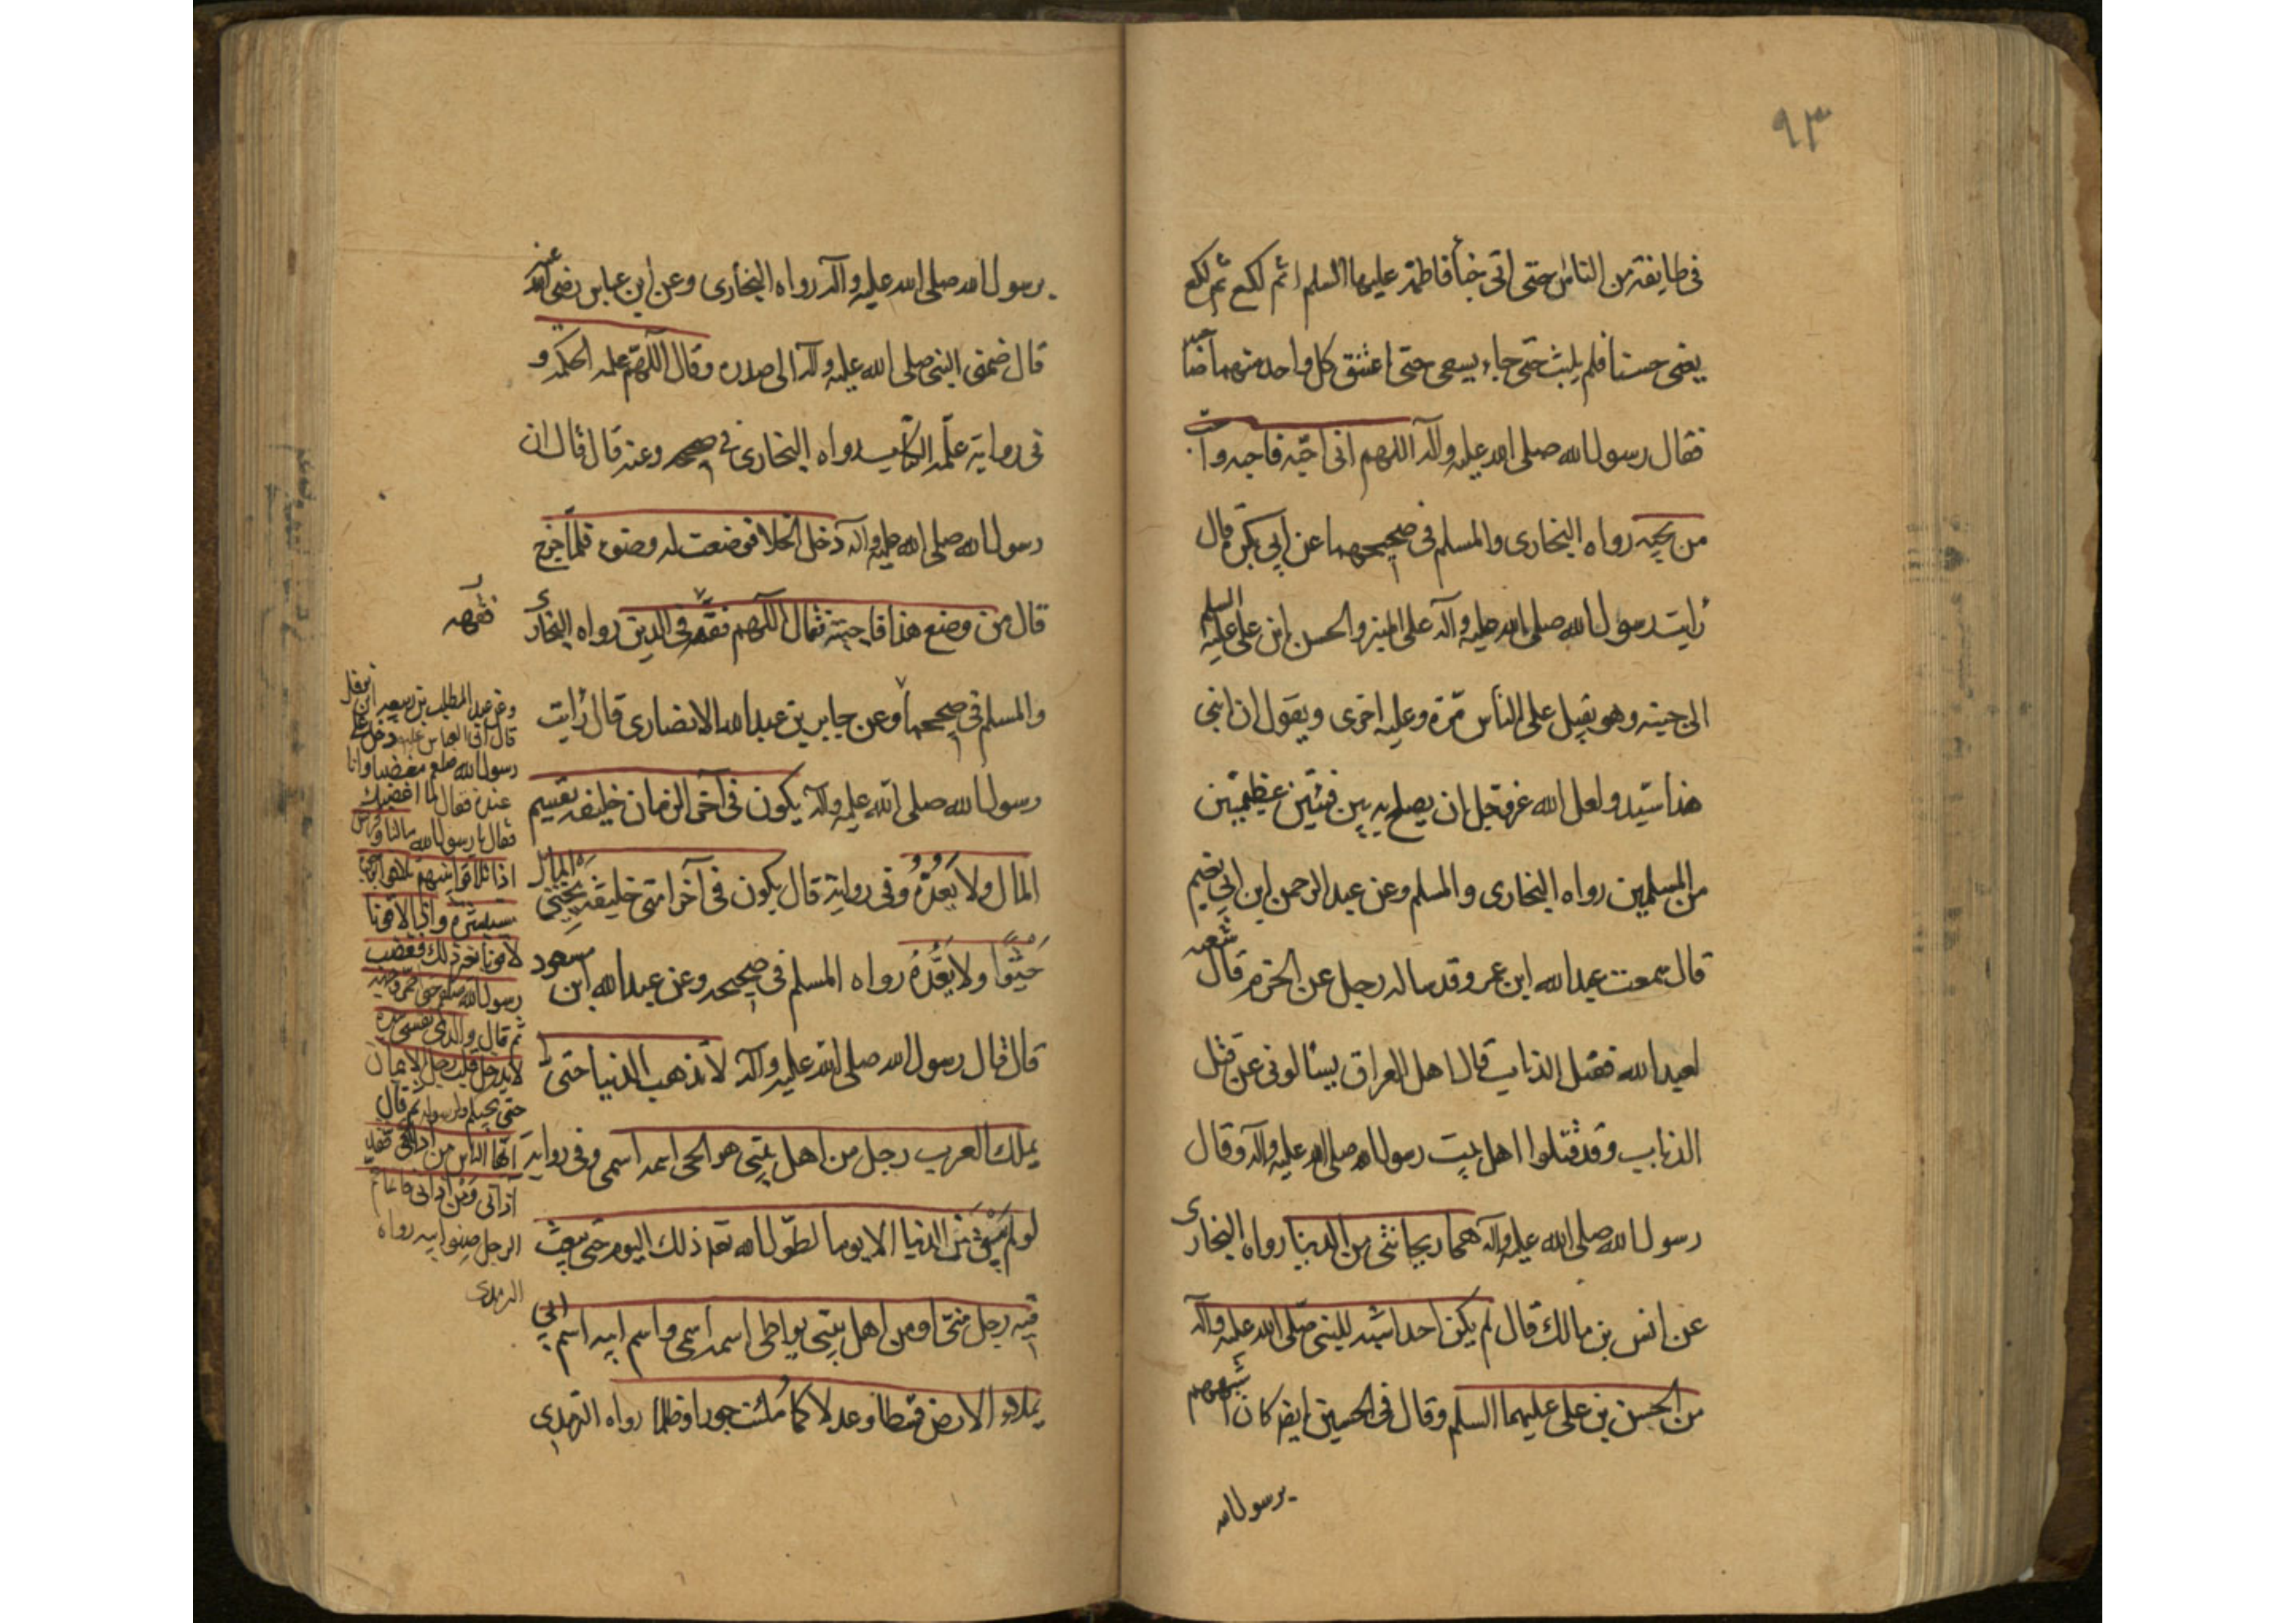 ٩٣
فى طايفة من الناس حتى اتى خبأ فاطمة عليها السلم اثم لكع ثم لكع
يعنى حسنا فلم يلبث حتى جاء يسعى حتى اعتنق كل واحد منهما صاحبه
فقال رسول الله صلى الله عليه وآله اللهم انى احبّه فاحبه واحبّ
من يحبه رواه البخارى والمسلم فى صحيحهما عن ابى بكرة قال
رأيت رسول الله صلى الله عليه وآله على المنبر والحسن ابن على عليه السلم
الى جنبه وهو يقبل على الناس مرّة وعليه اخرى ويقول ان ابنى
هذا سيّد ولعل الله عزوجل ان يصلح به بين فئتين عظيمتين
من المسلمين رواه البخارى والمسلم وعن عبد الرحمن ابن ابى نعيم
قال سمعت عبد الله ابن عمر وقد ساله رجل عن المحرم قال شعبه
لعبد الله فقتل الذباب قال اهل العراق يسألونى عن قتل
الذباب وقد قتلوا اهل بيت رسول الله صلى الله عليه وآله وقال
رسول الله صلى الله عليه وآله هما ريحانتى من الدنيا رواه البخارى
عن انس بن مالك قال لم يكن احد اشبه للنبى صلى الله عليه وآله
من الحسن بن على عليهما السلم وقال فى الحسين ايضا كان اشبههم
برسول الله
برسول الله صلى الله عليه وآله رواه البخارى وعن ابن عباس رضى الله عنه
قال ضمنى النبى صلى الله عليه وآله الى صدره وقال اللهم علمه الحكمة و
فى رواية علمه الكتاب رواه البخارى فى صحيحه وعنه قال قال ان
رسول الله صلى الله عليه وآله دخل الخلا فوضعت له وضوء فلما خرج
قال من وضع هذا فاجبته فقال اللهم فقهه فى الدين رواه البخارى
فقهه
والمسلم فى صحيحهما وعن جابر بن عبد الله الانصارى قال رأيت
رسول الله صلى الله عليه وآله يكون فى آخر الزمان خليفة يقسم
المال ولا يعدّه وفى رواية قال يكون فى آخر امتى خليفة يحثى المال
حثوا ولا يعدّه رواه المسلم فى صحيحه وعن عبد الله ابن مسعود
قال قال رسول الله صلى الله عليه وآله لا تذهب الدنيا حتى
يملك العرب رجل من اهل بيتى هو الحى اسمه اسمى وفى رواية
لو لم يبق من الدنيا الا يوما لطول الله تعه ذلك اليوم حتى يبعث
فيه رجل منى او من اهل بيتى يواطى اسمه اسمى واسم ابيه اسم ابى
يملاء الارض قسطا وعدلا كما ملئت جورا وظلما رواه الترمدى
وعن عبد المطلب بن ربيعه
قال ان العباس دخل على
رسول الله صلعم مغضبا وانا
عنده فقال ما اغضبك
فقال يا رسول الله مالنا و
اذا تلاقوا بينهم تلاقوا بوجوه
مبشرة واذا لاقونا
لاقونا بغير ذلك فغضب
رسول الله صلعم حتى احمر وجهه
ثم قال والذى نفسى بيده
لا يدخل قلب رجل الايمان
حتى يحبكم لله ولرسوله ثم قال
ايها الناس من اذى عمى فقد
آذانى فانما عم
الرجل صنو ابيه رواه
الترمدى